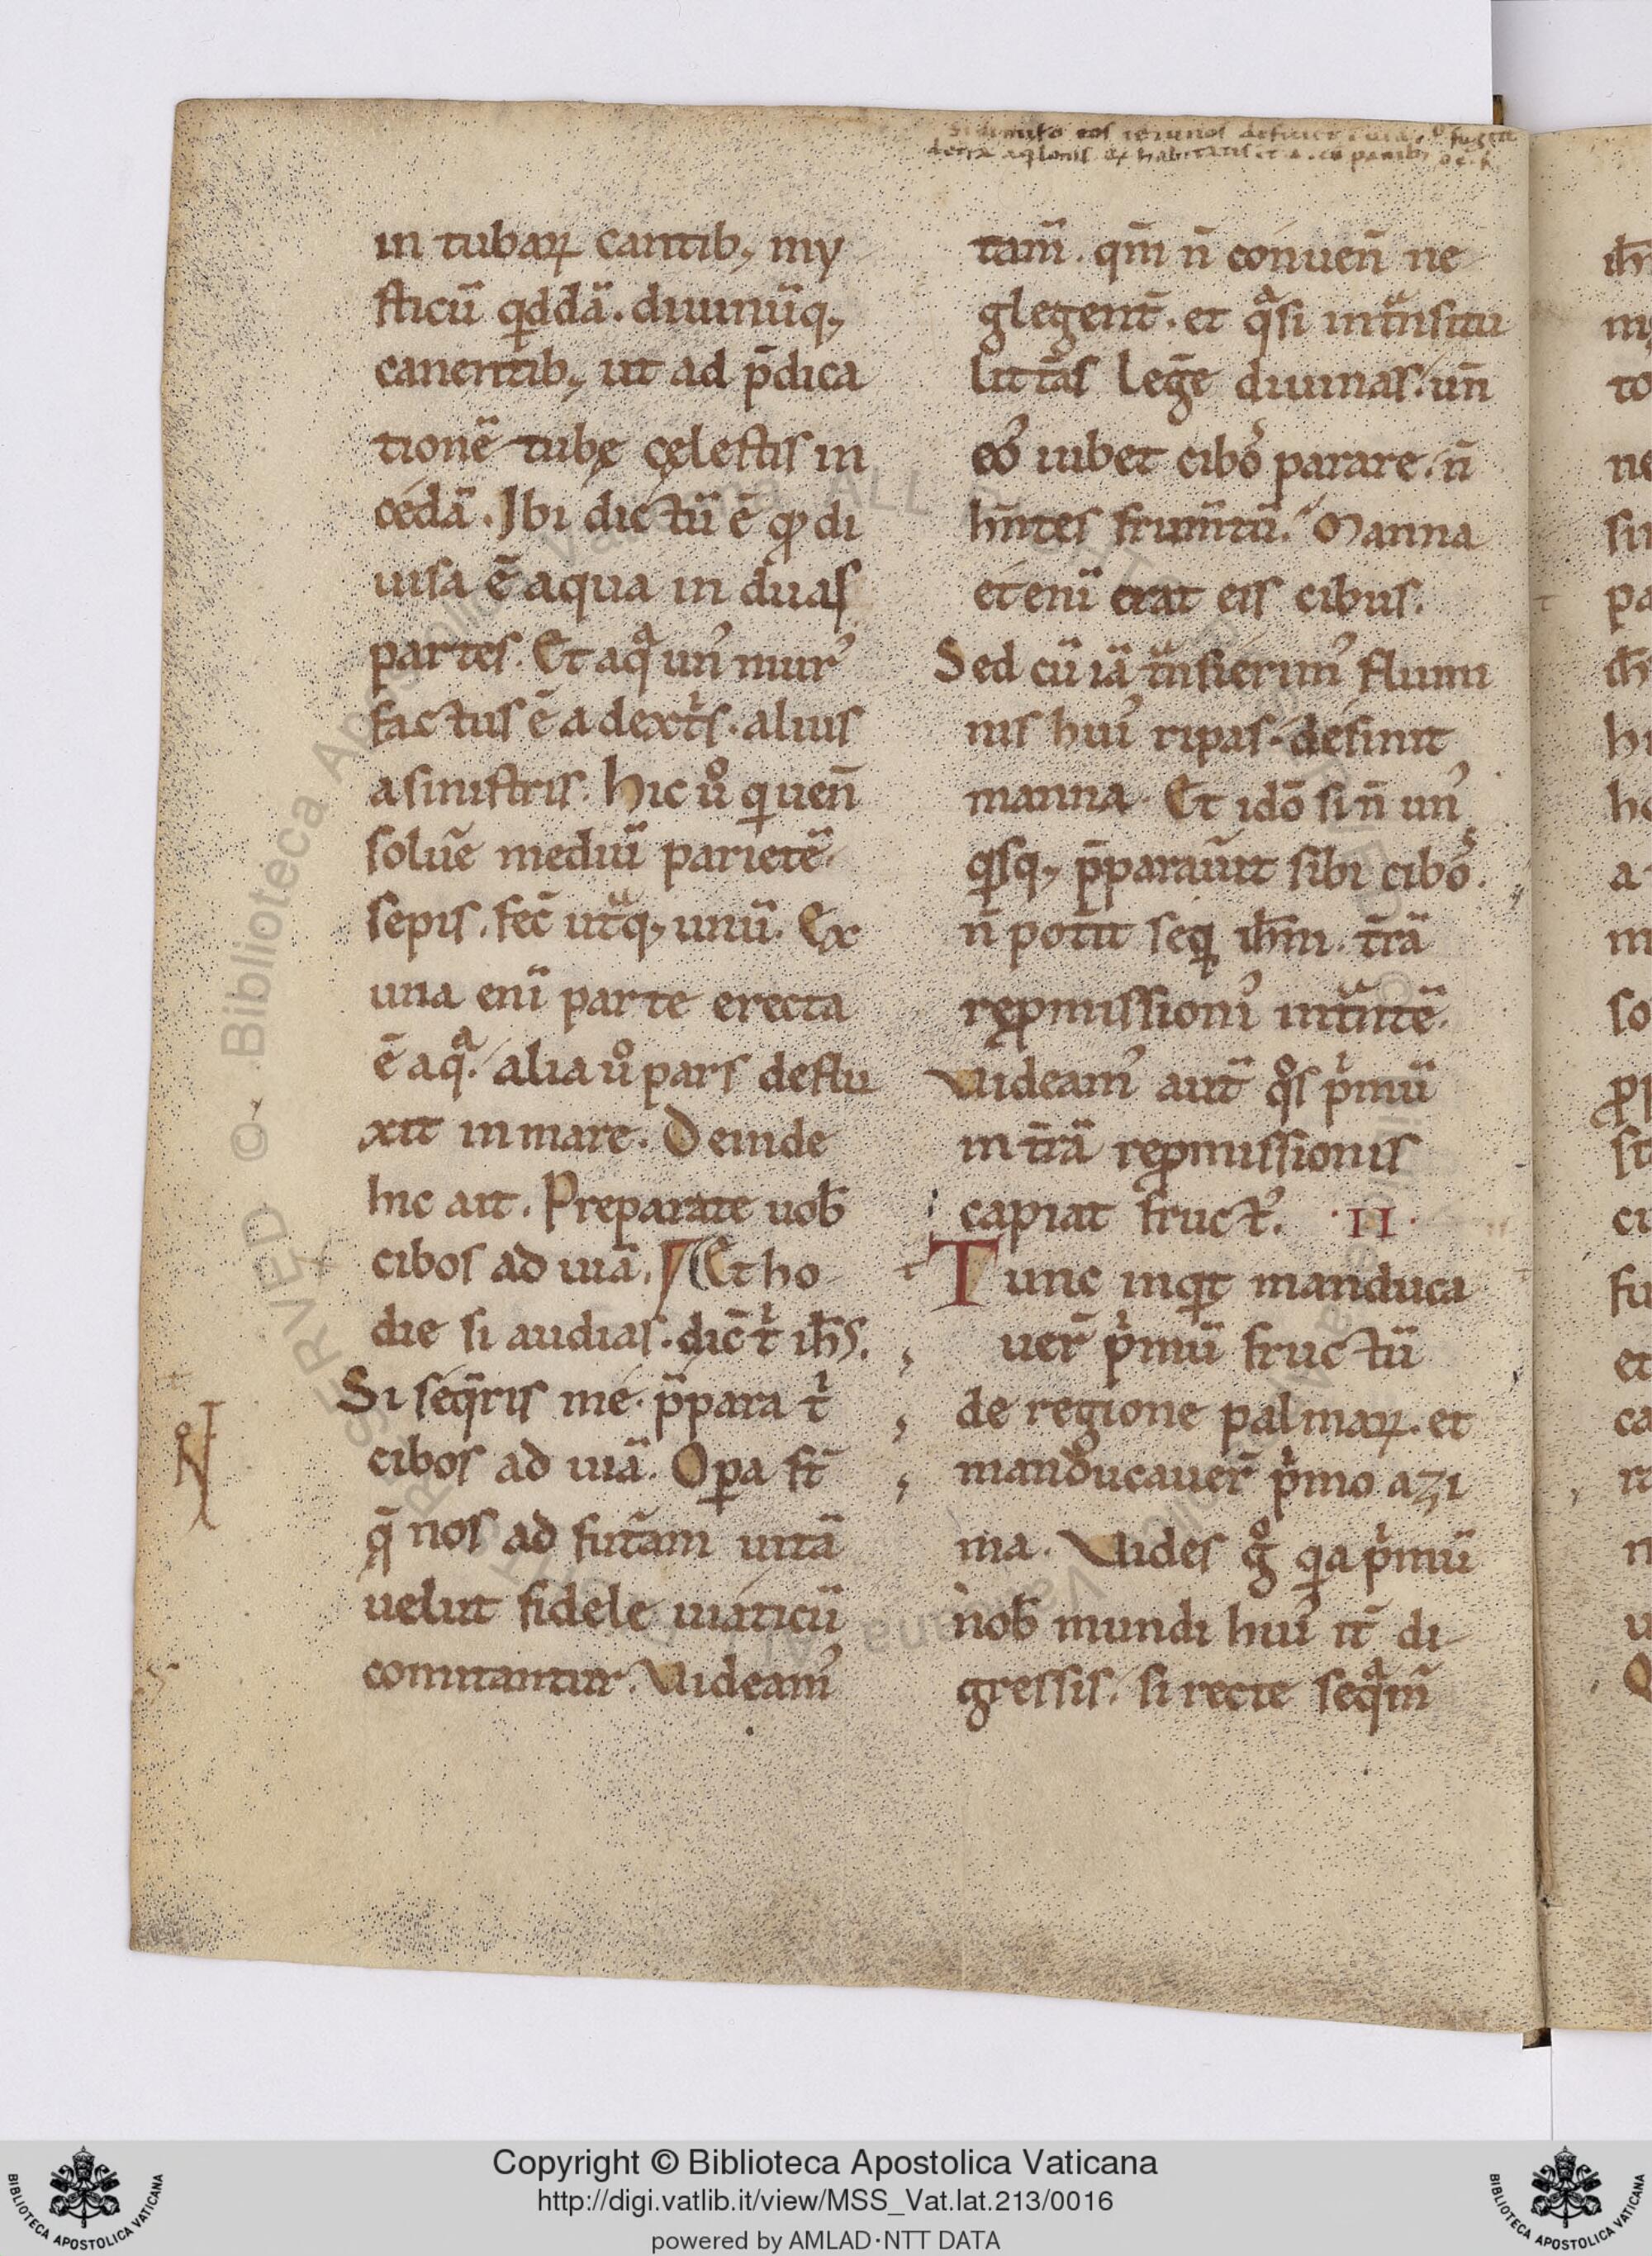 in tubaꝝ cantib; my
sticũ qͥddã. diuinũq;
canentib; ut ad p̃dica
tionẽ tubę cęlestis in
cedã. Ibi dictũ ẽ ꝙ di
uisa ẽ aqua in duas
partes. Et aqͣ un᷒ mur᷒
factus ẽ a dext̾s. alius
a sinistris. hic u̾o qui uen̄
soluẽ mediũ parietẽ
sepis. fec̄ utͣq; unũ. Ex
una eni̅ parte erecta
ẽ aqͣ. alia u̾o pars deflu
xit in mare. Deinde
hic ait. Preparate uob̄
cibos ad uiã. Et ho
die si audias. dic̄ tͥ ih̅s.
Si seq̃ris me. p̃para tͥ
cibos ad uiã. Oꝑa st̄
q̄ nos ad fut̃am uitã
uelut fidele uiaticũ
comitantur. Videam᷒
tam̄. qm̄ n̄ conuen̄ ne
glegent̄. et qͣsi in tͣnsitu
litt̃as leg̃e diuinas. un̄
eo᷒ iubet cibo᷒ parare. n̄
hn̄tes frum̄tũ. Manna
etenī erat eis cibus.
Sed cũ iã tͣnsierim᷒ flumi
nis hui᷒ ripas. desinit
manna. Et idō si n̄ un᷒
qͥsq; p̃parau̾it sibi cibo᷒.
n̄ pot̾it seqͥ ih̅m. t̃rã
reꝓmissioni᷒ intͣntẽ.
Videam᷒ aut̄ qͦs pͥmũ
in t̃rã reꝓmissionis
capiat fruct᷒. ·II·
Tunc inqͥt manduca
uer̄ pͥmũ fructũ
de regione palmaꝝ. et
manducauer̄ pͥmo azi
ma. Vides gͦ qͥa pͥmũ
nob̄ mundi hui᷒ it̃ di
gressis. si recte seqͣm̄
Copyright © Biblioteca Apostolica Vaticana
http://digi.vatlib.it/view/MSS_Vat.lat.213/0016
powered by AMLAD·NTT DATA